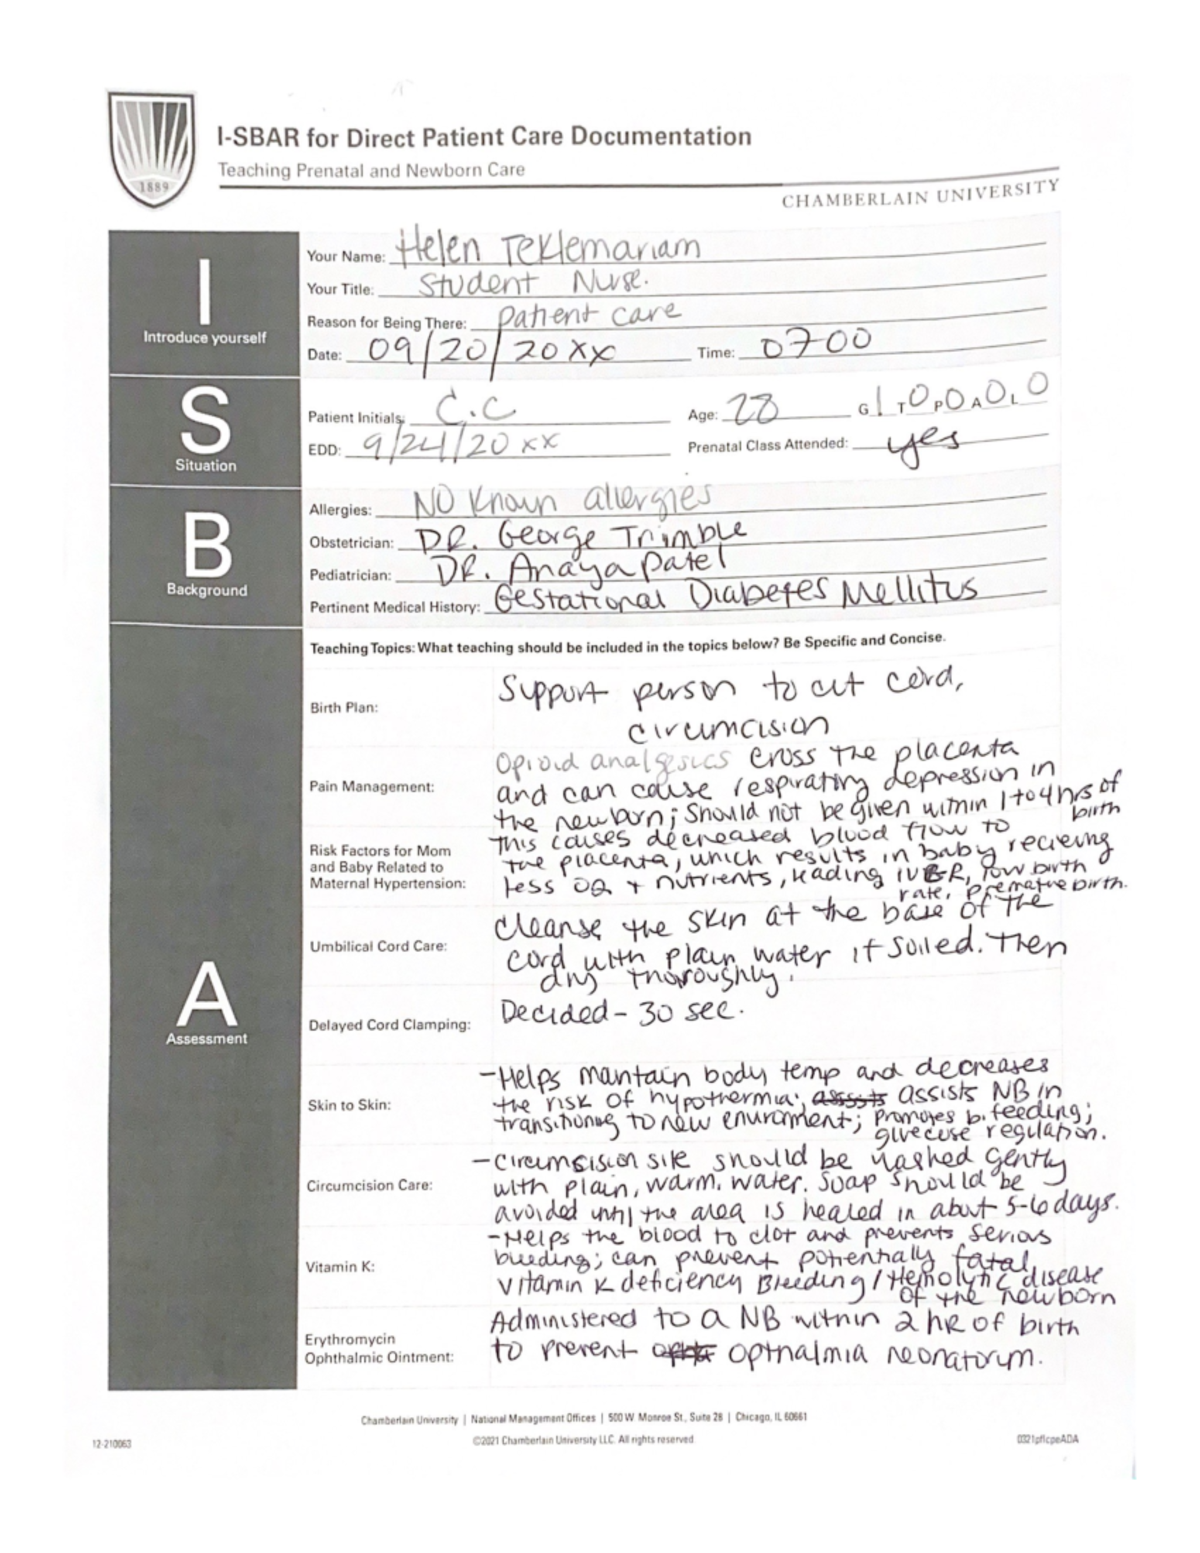 I-SBAR for Direct Patient Care Documentation
Teaching Prenatal and Newborn Care
1889
CHAMBERLAIN UNIVERSITY
I
Introduce yourself
Your Name: Helen Teklemariam
Your Title: Student Nurse.
Reason for Being There: patient care
Date: 09/20/20XX Time: 0700
S
Situation
Patient Initials: C.C Age: 28 G1 T0 P0 A0 L0
EDD: 9/24/20xx Prenatal Class Attended: yes
B
Background
Allergies: NO Known allergies
Obstetrician: DR. George Trimble
Pediatrician: DR. Anaya Patel
Pertinent Medical History: Gestational Diabetes Mellitus
A
Assessment
Teaching Topics: What teaching should be included in the topics below? Be Specific and Concise.
Birth Plan:
Support person to cut cord,
circumcision
Pain Management:
Opioid analgesics cross the placenta
and can cause respiratory depression in
the newborn; Should not be given within 1 to 4 hrs of
birth
Risk Factors for Mom
and Baby Related to
Maternal Hypertension:
This causes decreased blood flow to
the placenta, which results in baby recieving
less O2 + nutrients, leading IUGR, low birth
rate, premature birth.
Umbilical Cord Care:
cleanse the skin at the base of the
cord with plain water if soiled. Then
dry thoroughly.
Delayed Cord Clamping:
Decided - 30 sec.
Skin to Skin:
- Helps mantain body temp and decreases
the risk of hypothermia; assists NB in
transitioning to new enviroment; promotes b. feeding;
glucose regulation.
Circumcision Care:
- circumcision site should be washed gently
with plain, warm, water. Soap should be
avoided until the area is healed in about 5-6 days.
Vitamin K:
- Helps the blood to clot and prevents serious
bleeding; can prevent potentially fatal
vitamin K deficiency Bleeding / Hemolytic disease
of the newborn
Erythromycin
Ophthalmic Ointment:
Administered to a NB within 2 hr of birth
to prevent opthalmia neonatorum.
Chamberlain University | National Management Offices | 500 W Monroe St., Suite 28 | Chicago, IL 60661
12-210063
©2021 Chamberlain University LLC. All rights reserved
0321pflcpeADA